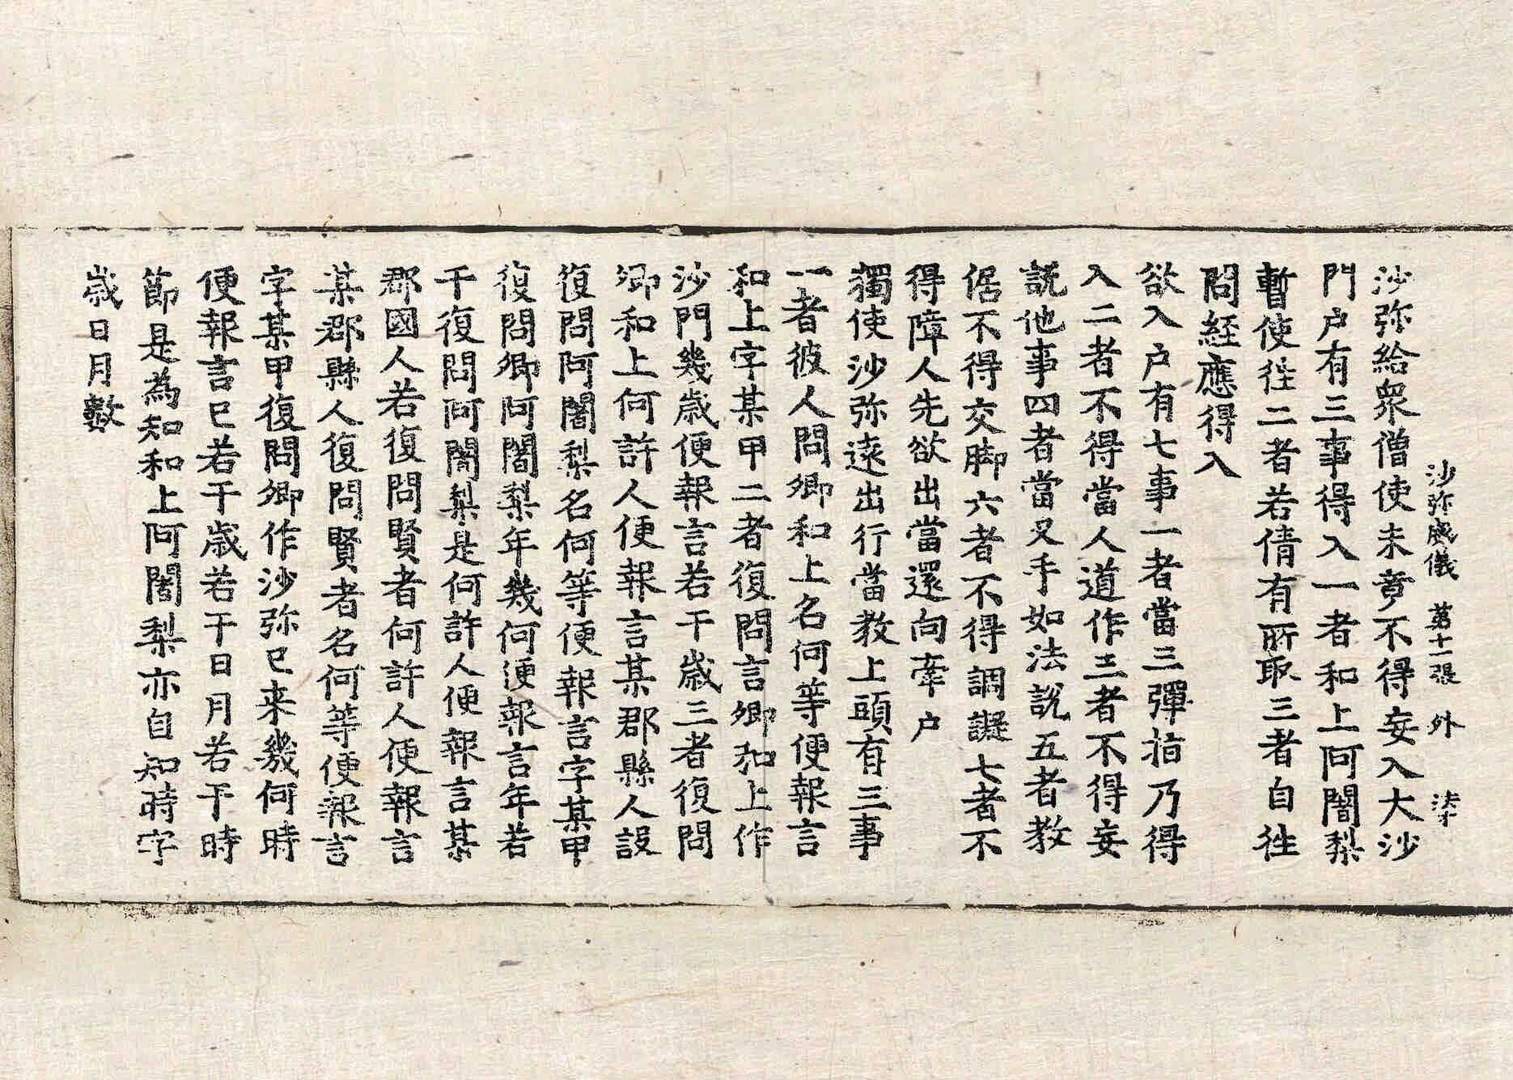 沙弥威儀 第十一張 外
沙弥給衆僧使未竟不得妄入大沙
門户有三事得入一者和上阿闍梨
暫使往二者若倩有所取三者自往
問経應得入
欲入户有七事一者當三彈指乃得
入二者不得當人道作三者不得妄
説他事四者當叉手如法説五者教
倨不得交脚六者不得調譺七者不
得障人先欲出當還向牽户
獨使沙弥遠出行當教上頭有三事
一者彼人問卿和上名何等便報言
和上字某甲二者復問言卿和上作
沙門幾歳便報言若干歳三者復問
卿和上何許人便報言某郡縣人設
復問阿闍梨名何等便報言字某甲
復問卿阿闍梨年幾何便報言年若
干復問阿闍梨是何許人便報言某
郡國人若復問賢者何許人便報言
某郡縣人復問賢者名何等便報言
字某甲復問卿作沙弥已来幾何時
便報言已若干歳若干日月若干時
節是為知和上阿闍梨亦自知時字
歳日月數